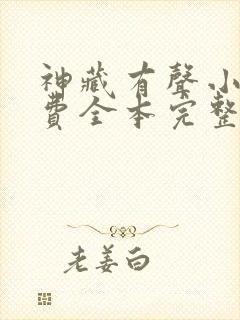 神藏有聲小
費全本完整
老姜白